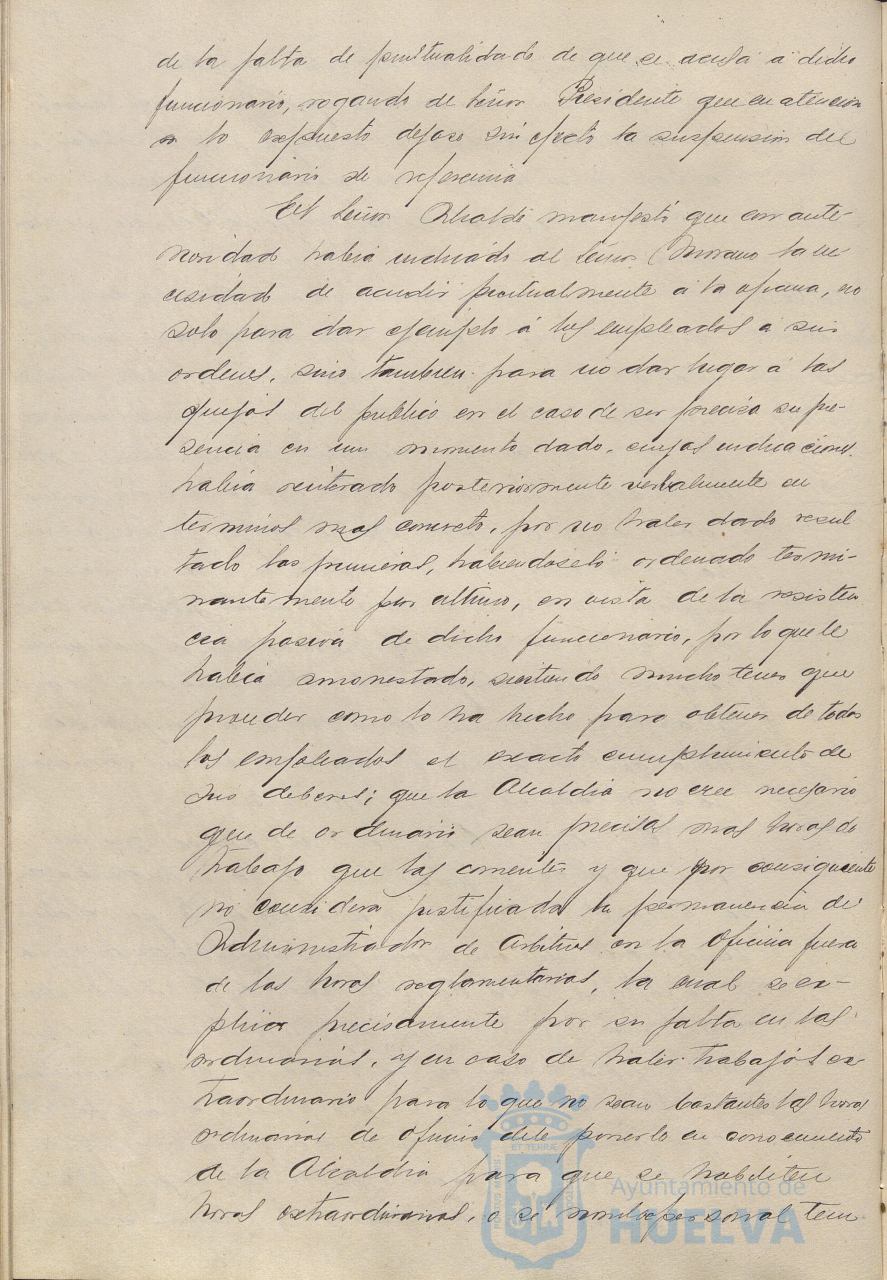 de la falta de puntualidad de que se acusa a dicho
funcionario, rogando de Señor Presidente que en atencion
a lo expuesto dejase sin efecto la suspension del
funcionario de referencia
El Señor Alcalde manifestó que con ante-
rioridad habia indicado al Señor Moreno la ne
cesidad de acudir puntualmente a la oficina, no
solo para dar ejemplo á los empleados a sus
ordenes, sino tambien para no dar lugar á las
quejas del publico en el caso de ser precisa su pre-
sencia en un momento dado, cuyas indicaciones
habia reiterado posteriormente verbalmente en
terminos mas concreto, por no haber dado resul
tado las primeras, habiendoselo ordenado termi-
nantemente por ultimo, en vista de la resisten
cia pasiva de dicho funcionario, por lo que le
habia amonestado, sintiendo mucho tener que
proceder como lo ha hecho para obtener de todos
los empleados el exacto cumplimiento de
sus deberes; que la Alcaldia no cree necesario
que de ordinario sean precisas mas horas de
trabajo que las corrientes y que por consiguiente
no considera justificada la permanencia del
Administrador de Arbitrios en la Oficina fuera
de las horas reglamentarias, la cual se ex-
plica precisamente por su falta en las
ordinarias, y en caso de haber trabajos ex-
traordinario para lo que no sean bastantes las horas
ordinarias de oficina debe ponerlo en conocimiento
de la Alcaldia para que se habiliten
horas extraordinarias, o se nombre personal tem
Ayuntamiento de
HUELVA